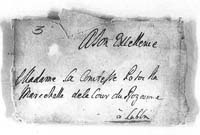 3
A Son Excellence
Madame la Comtesse
Marechalle de la Cour du Royaume
a